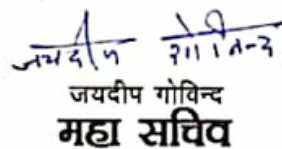 जयदीप गोविन्द
जयदीप गोविन्द
महा सचिव